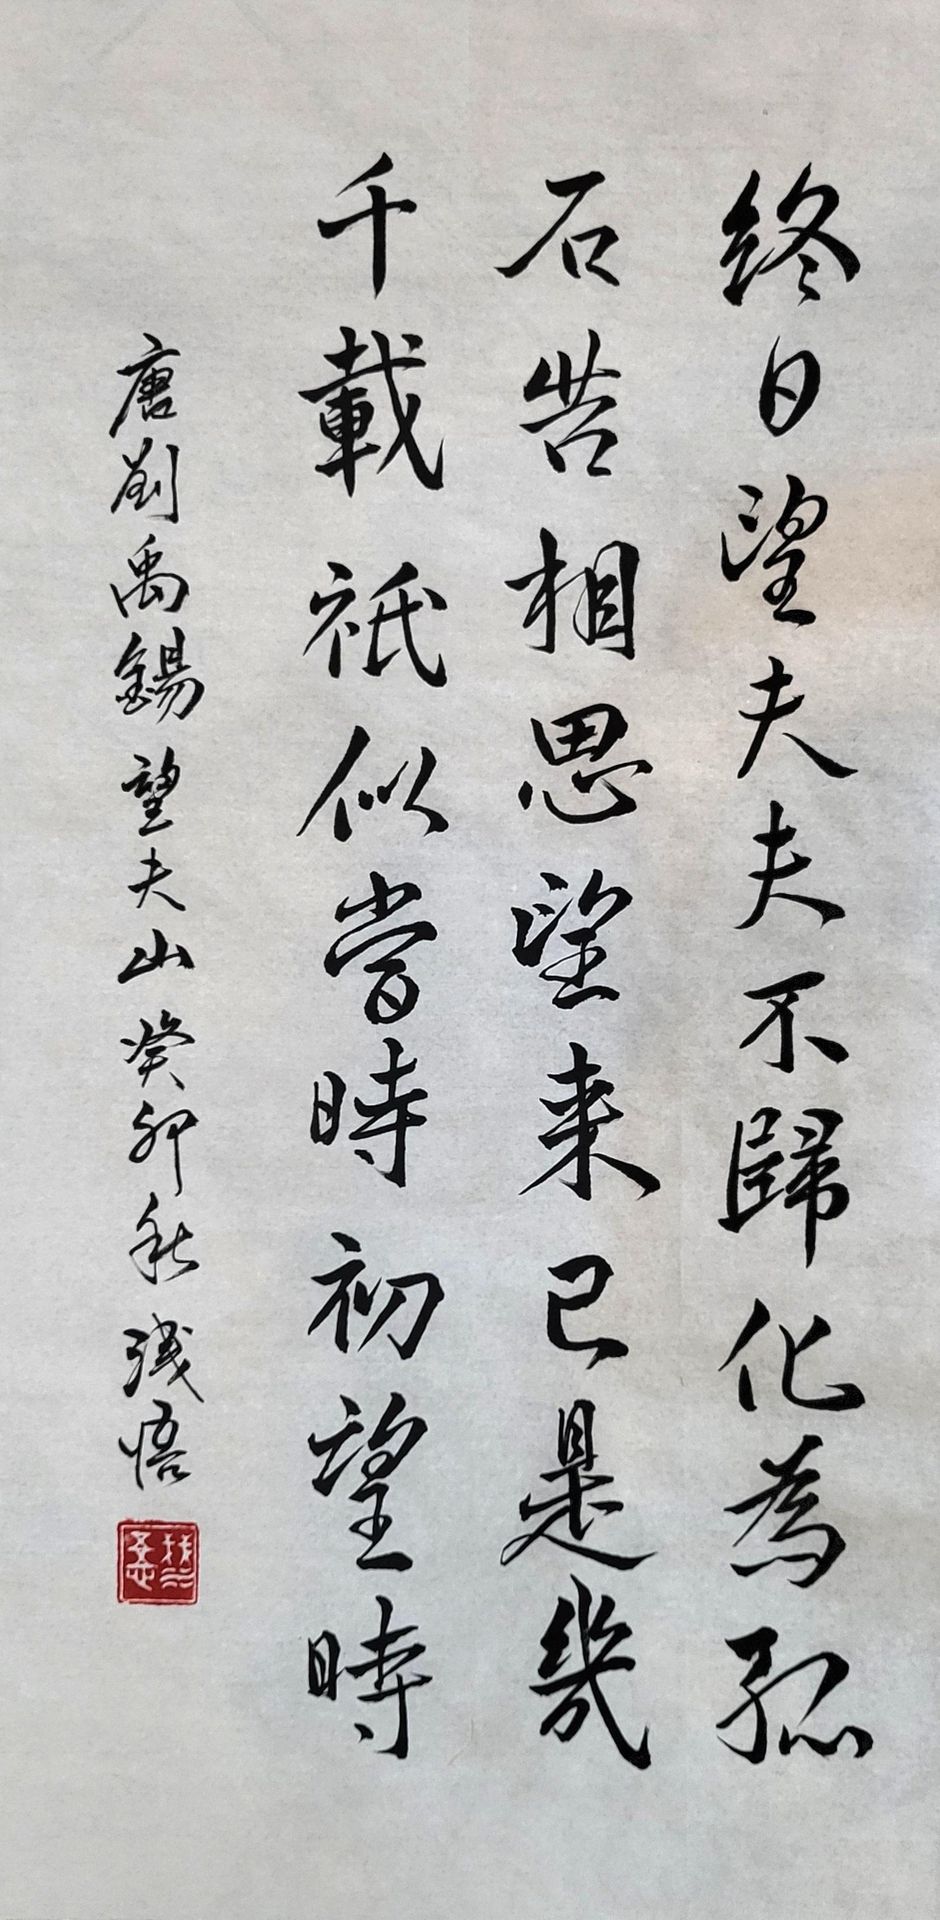 終日望夫夫不歸化為孤
石苦相思望来已是幾
千載祇似當時初望時
唐劉禹錫望夫山癸卯秋浅悟